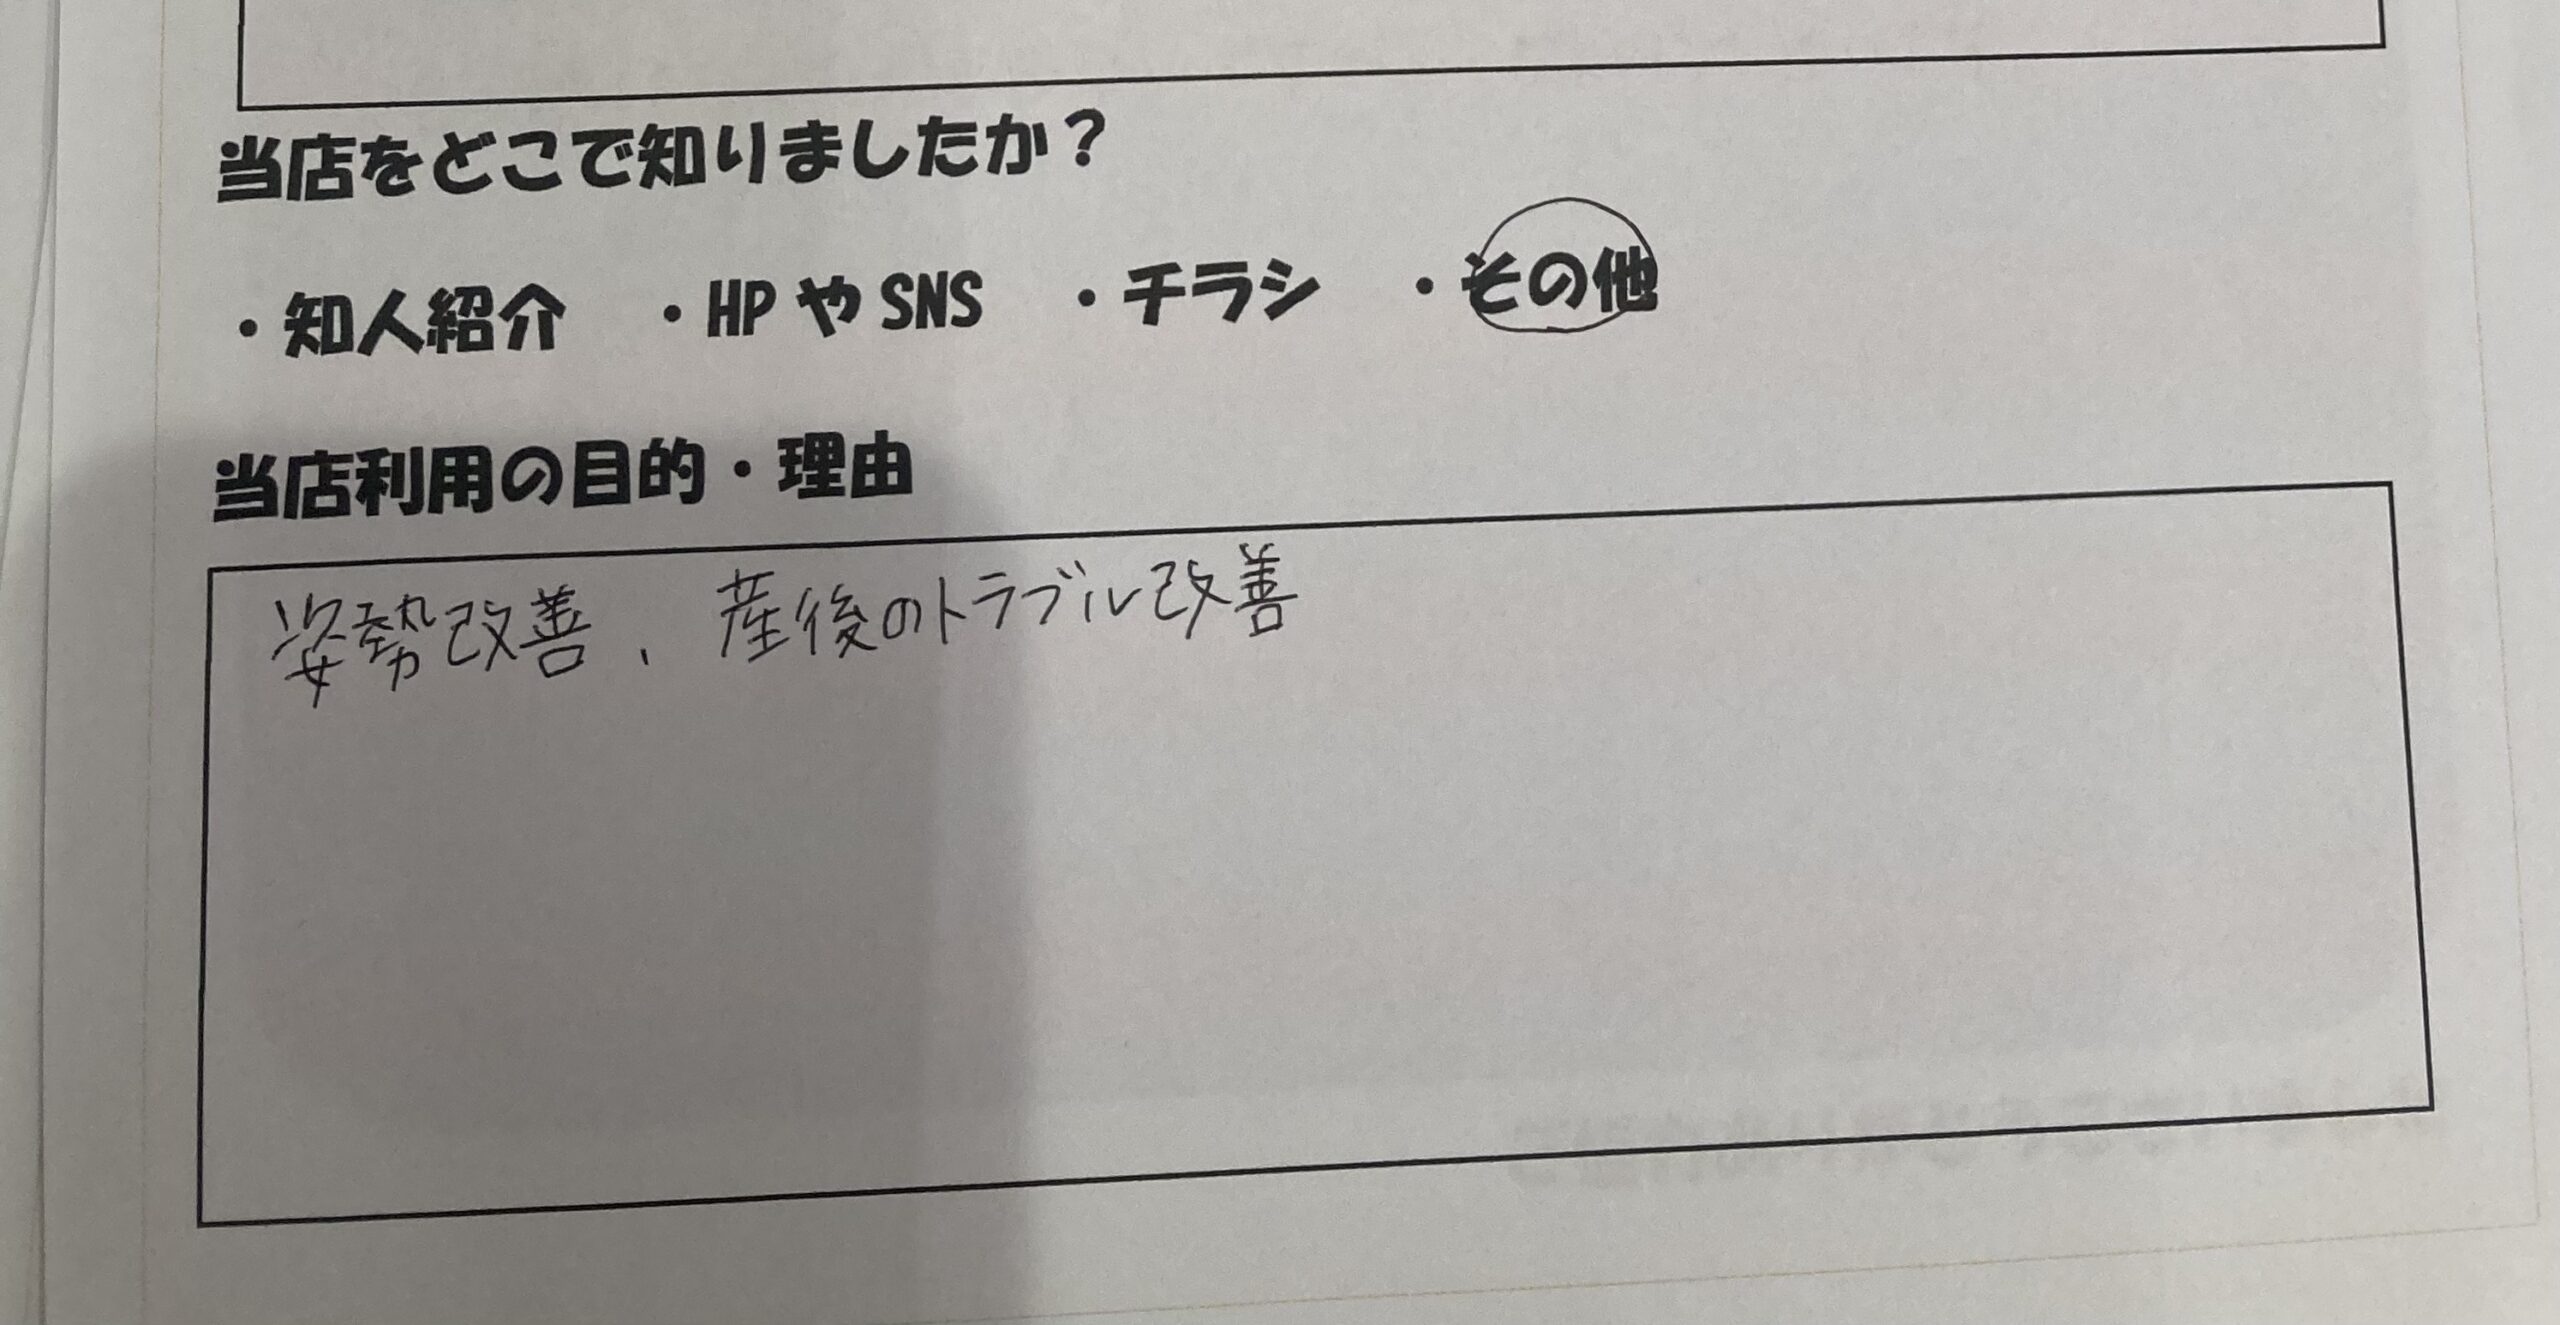 当店をどこで知りましたか？
・知人紹介　・HPやSNS　・チラシ　・その他
当店利用の目的・理由
姿勢改善、産後のトラブル改善